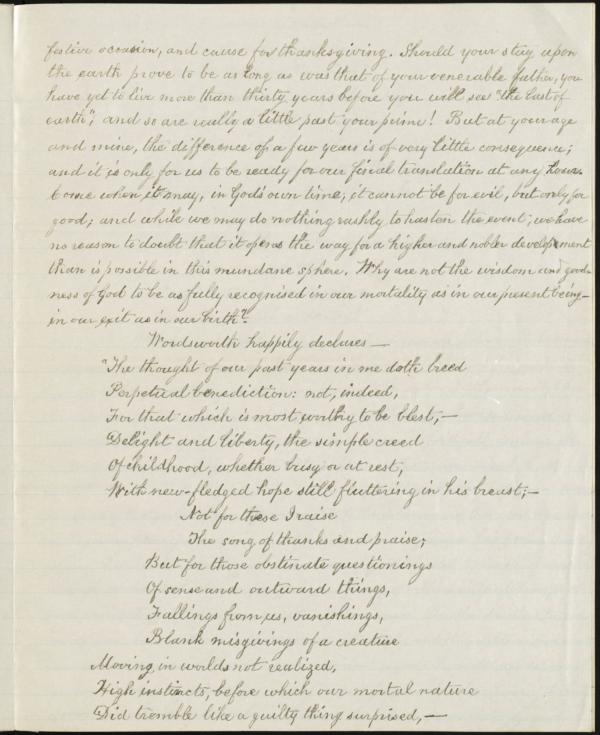 festive occasion, and cause for thanksgiving. Should your stay upon
the earth prove to be as long as was that of your venerable father, you
have yet to live more than thirty years before you will see "the last of
earth"; and so are really a little past your prime! But at your age
and mine, the difference of a few years is of very little consequence;
and it is only for us to be ready for our final translation at any hour.
Come when it may, in God's own time, it cannot be for evil, but only for
good; and while we may do nothing rashly to hasten the event, we have
no reason to doubt that it opens the way for a higher and nobler development
than is possible in this mundane sphere. Why are not the wisdom and good-
ness of God to be as fully recognised in our mortality as in our present being—
in our exit as in our birth?
Wordsworth happily declares—
"The thought of our past years in me doth breed
Perpetual benediction: not, indeed,
For that which is most worthy to be blest,—
Delight and liberty, the simple creed
Of childhood, whether busy or at rest,
With new-fledged hope still fluttering in his breast;—
Not for these I raise
The song of thanks and praise;
But for those obstinate questionings
Of sense and outward things,
Fallings from us, vanishings,
Blank misgivings of a creature
Moving in worlds not realized,
High instincts, before which our mortal nature
Did tremble like a guilty thing surprised,—